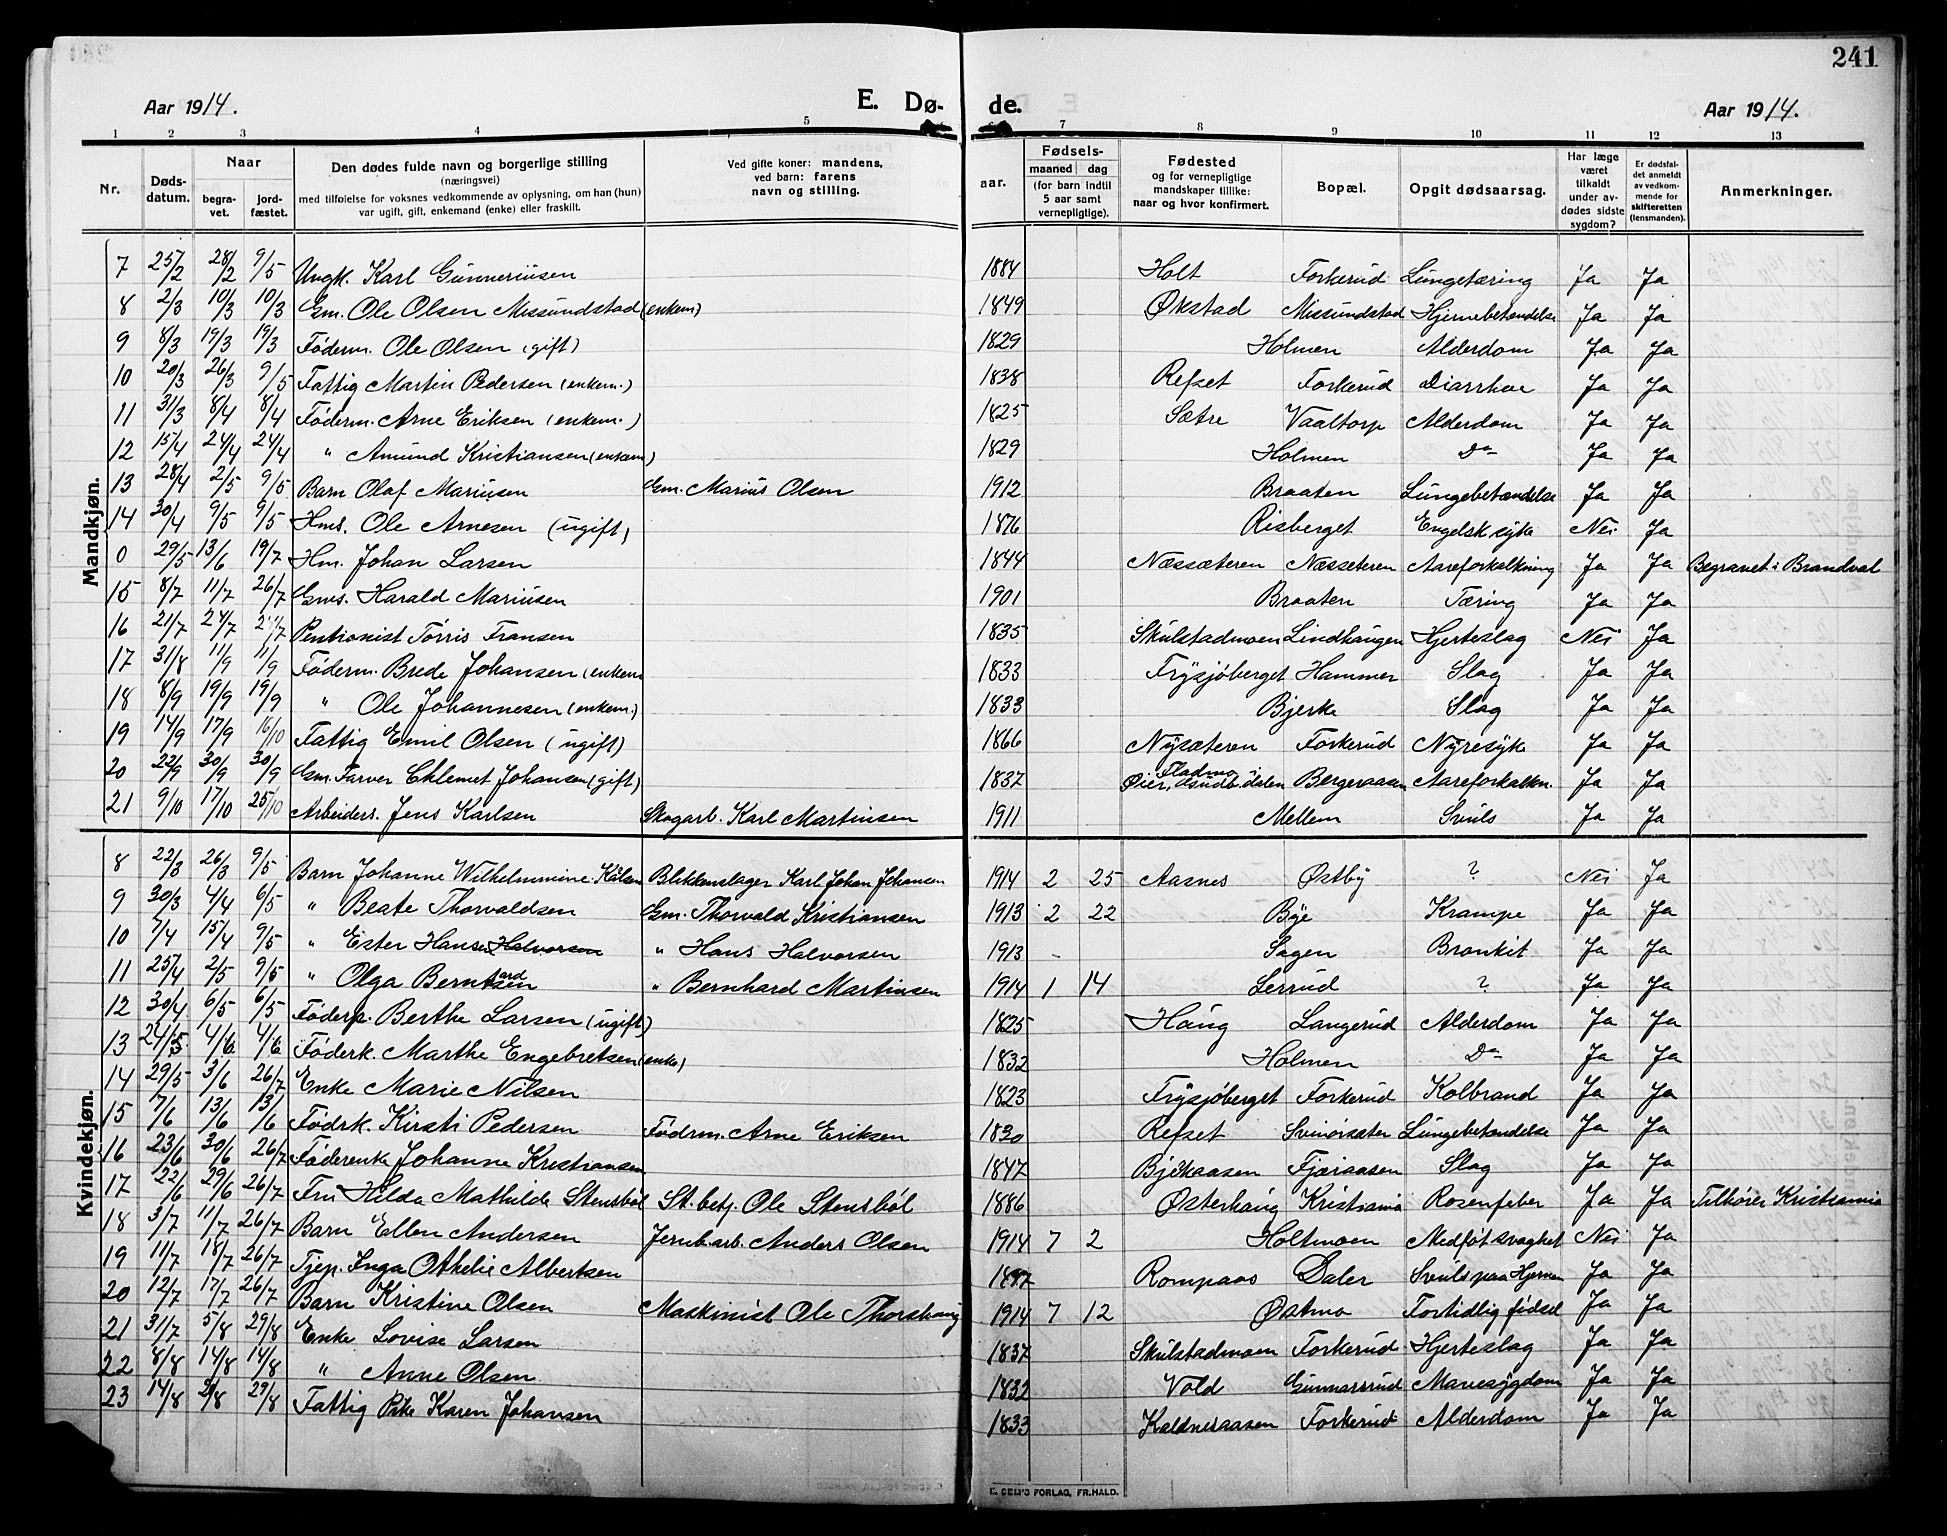 241
Aar 1914. E. Dø- de. Aar 1914.
1 2 3 4 5 7 8 9 10 11 12 13
Nr. Døds-datum. Naar begra-vet. jord-fæstet. Den dødes fulde navn og borgerlige stilling (næringsvei) med tilføielse for voksnes vedkommende av oplysning, om han (hun) var ugift, gift, enkemand (enke) eller fraskilt. Ved gifte koner: mandens, ved barn: farens navn og stilling. aar. Fødsels- maaned dag (for barn indtil 5 aar samt vernepligtige). Fødested og for vernepligtige mandskaper tillike: naar og hvor konfirmert. Bopæl. Opgit dødsaarsag. Har læge været tilkaldt under av-dødes sidste sygdom? Er dødsfal-det anmeldt av vedkom-mende for skifteretten (lensmanden). Anmerkninger.
Mandkjøn.
7 25/2 28/2 9/5 Ungk. Karl Gunneriusen 1884 Holt Forkerud Lungetæring Ja Ja
8 2/3 10/3 10/3 Gm. Ole Olsen Missundstad (enkem) 1849 Økstad Missundstad Hjernebetændelse Ja Ja
9 8/3 19/3 19/3 Føderm. Ole Olsen (gift) 1829 Holmen Alderdom Ja Ja
10 20/3 26/3 9/5 Fattig Martin Pedersen (enkem.) 1838 Refset Forkerud Diarrhoe Ja Ja
11 31/3 8/4 8/4 Føderm. Arne Eriksen (enkem.) 1825 Sætre Vaaltorp Alderdom Ja Ja
12 15/4 24/4 24/4 " Amund Kristiansen (enkem) 1829 Holmen Do Ja Ja
13 28/4 2/5 9/5 Barn Olaf Mariusen Gm. Marius Olsen 1912 Braaten Lungebetændelse Ja Ja
14 30/4 9/5 9/5 Hms. Ole Arnesen (ugift) 1876 Risberget Engelsk syke Nei Ja
0 29/5 13/6 19/7 Hm. Johan Larsen 1844 Næssæteren Næsseteren Aareforkalkning Ja Ja Begravet i Brandval
15 8/7 11/7 26/7 Gms. Harald Mariusen 1901 Braaten Tæring Ja Ja
16 21/7 24/7 Pentionist Tørris Fransen 1835 Skulstadmoen Lindhaugen Hjerteslag Nei Ja
17 31/8 11/9 11/9 Føderm. Brede Johansen (enkem 1833 Frysjøberget Hammer Slag Ja Ja
18 8/9 19/9 19/9 " Ole Johannesen (enkem.) 1833 Bjerke Slag Ja Ja
19 14/9 17/9 16/10 Fattig Emil Olsen (ugift) 1866 Nysæteren Forkerud Nyresyke Ja Ja
20 22/9 30/9 30/9 Gm. Farver Chlemet Johansen (gift) 1837 Fladmo i Øier, Gudb.dalen Bergeraaen Aareforkalkn. Ja Ja
21 9/10 17/10 25/10 Arbeiders. Jens Karlsen Skogarb. Karl Martinsen 1911 Mellem Svuls Ja Ja
Kvindekjøn.
8 22/3 26/3 9/5 Barn Johanne Wilhelmmine Kalsen Blikkenslager Karl Johan Johansen 1914 2 25 Aasnes Østby ? Nei Ja
9 30/3 4/4 6/5 " Beate Thorvaldsen Gm. Thorvald Kristiansen 1913 2 22 Bye Krampe Ja Ja
10 7/4 15/4 9/5 " Ester Hansen Halvorsen " Hans Halvorsen 1913 - Sagen Bronkit Ja Ja
11 25/4 2/5 9/5 " Olga Berntsen ard " Bernhard Martinsen 1914 1 14 Lerrud ? Ja Ja
12 30/4 6/5 6/5 Føderp. Berthe Larsen (ugift) 1825 Haug Langerud Alderdom Ja Ja
13 24/5 4/6 4/6 Føderk. Marthe Engebretsen (enke) 1832 Holmen Do Ja Ja
14 29/5 3/6 26/7 Enke Marie Nilsen 1823 Frysjøberget Forkerud Kolbrand Ja Ja
15 7/6 13/6 13/6 Fødrk. Kirsti Pedersen Fødrm. Arne Eriksen 1830 Refset Svinoisæter Lungebetændelse Ja Ja
16 23/6 30/6 26/7 Føderenke Johanne Kristiansen 1847 Bjekaasen Fjæraasen Slag Ja Ja
17 22/6 29/6 26/7 Fru Hilda Mathilde Stensbøl St.betj. Ole Stensbøl 1886 Østerhaug Kristiania Rosenfeber Ja Ja Tilhører Kristiania
18 3/7 11/7 26/7 Barn Ellen Andersen Jernb.arb. Anders Olsen 1914 7 2 Holtmoen Medføt svaghet Nei Ja
19 11/7 18/7 26/7 Tjep. Inga Othelie Albertsen 1897 Rompaas Daler Svuls paa Hjernen Ja Ja
20 12/7 17/7 26/7 Barn Kristine Olsen Maskinist Ole Thorshaug 1914 7 12 Østmo Fortidlig fødsel Ja Ja
21 31/7 5/8 29/8 Enke Lovise Larsen 1837 Skulstadmoen Forkerud Hjerteslag Ja Ja
22 8/8 14/8 14/8 " Anne Olsen 1832 Vold Gunnarsrud Mavesygdom Ja Ja
23 14/8 21/8 29/8 Fattig Pike Karen Johansen 1833 Kaldneraasen Forkerud Alderdom Ja Ja
E. SEM'S FORLAG, FR.HALD.